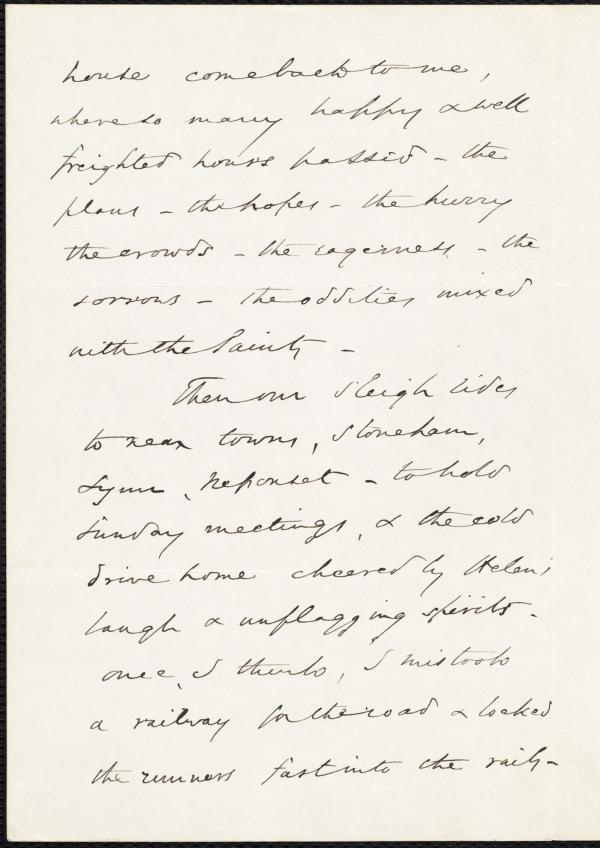 house come back to me,
where so many happy & well
freighted hours passed - the
plans - the hopes - the hurry
the crowds - the eagerness - the
sorrows - the oddities mixed
with the Saints -
Then our sleigh rides
to near towns, Stoneham,
Lynn, Neponset - to hold
Sunday meetings, & the cold
drive home cheered by Helen's
laugh & unflagging spirits -
once, I think, I mistook
a railway for the road & locked
the runners fast into the rails -